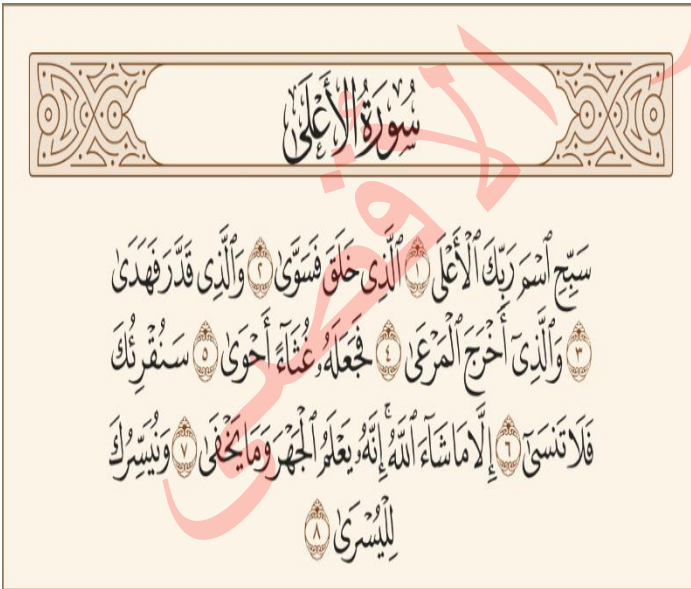 سُورَةُ الْأَعْلَىٰ
سَبِّحِ ٱسْمَ رَبِّكَ ٱلْأَعْلَى ١ ٱلَّذِى خَلَقَ فَسَوَّىٰ ٢ وَٱلَّذِى قَدَّرَ فَهَدَىٰ
٣ وَٱلَّذِىٓ أَخْرَجَ ٱلْمَرْعَىٰ ٤ فَجَعَلَهُۥ غُثَآءً أَحْوَىٰ ٥ سَنُقْرِئُكَ
فَلَا تَنسَىٰٓ ٦ إِلَّا مَا شَآءَ ٱللَّهُ ۚ إِنَّهُۥ يَعْلَمُ ٱلْجَهْرَ وَمَا يَخْفَىٰ ٧ وَنُيَسِّرُكَ
لِلْيُسْرَىٰ ٨